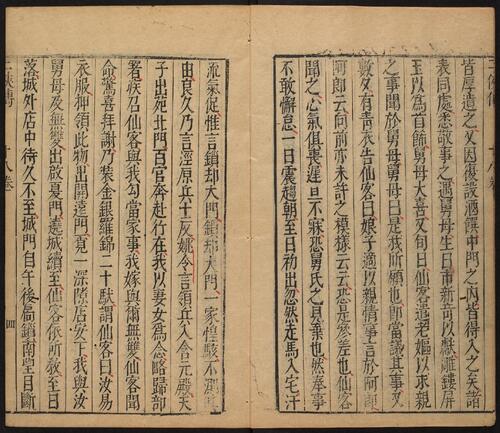 皆厚遺之又因復設酒饌中門之內皆得入之矣諸
表同處悉敬事之遇舅母生日市新奇以獻雕鏤犀
玉以為首飾舅母大喜又旬日仙客遣老嫗以求親
之事聞於舅母舅母曰是我所願也即當議其事又
數夕有青衣告仙客曰娘子適以親情事言於阿郎
阿郎云向前亦未許之模樣云云恐是參差也仙客
聞之心氣俱喪遲旦不寐恐舅氏之見棄也然奉事
不敢懈怠一日震趨朝至日初出忽然走馬入宅汗
流氣促惟言鎖却大門鎖却大門一家惶駭不測其
由良久乃言涇原兵士反姚令言領兵入含元殿天
子出苑北門百官奔赴行在我以妻女為念略歸部
署疾召仙客與我勾當家事我嫁與爾無雙仙客聞
命驚喜拜謝乃裝金銀羅錦二十馱謂仙客曰汝易
衣服押領此物出開遠門覓一深隙店安下我與汝
舅母及無雙出啟夏門遶城續至仙客依所教至日
落城外店中待久不至城門自午後扃鎖南望目斷
十八卷
四